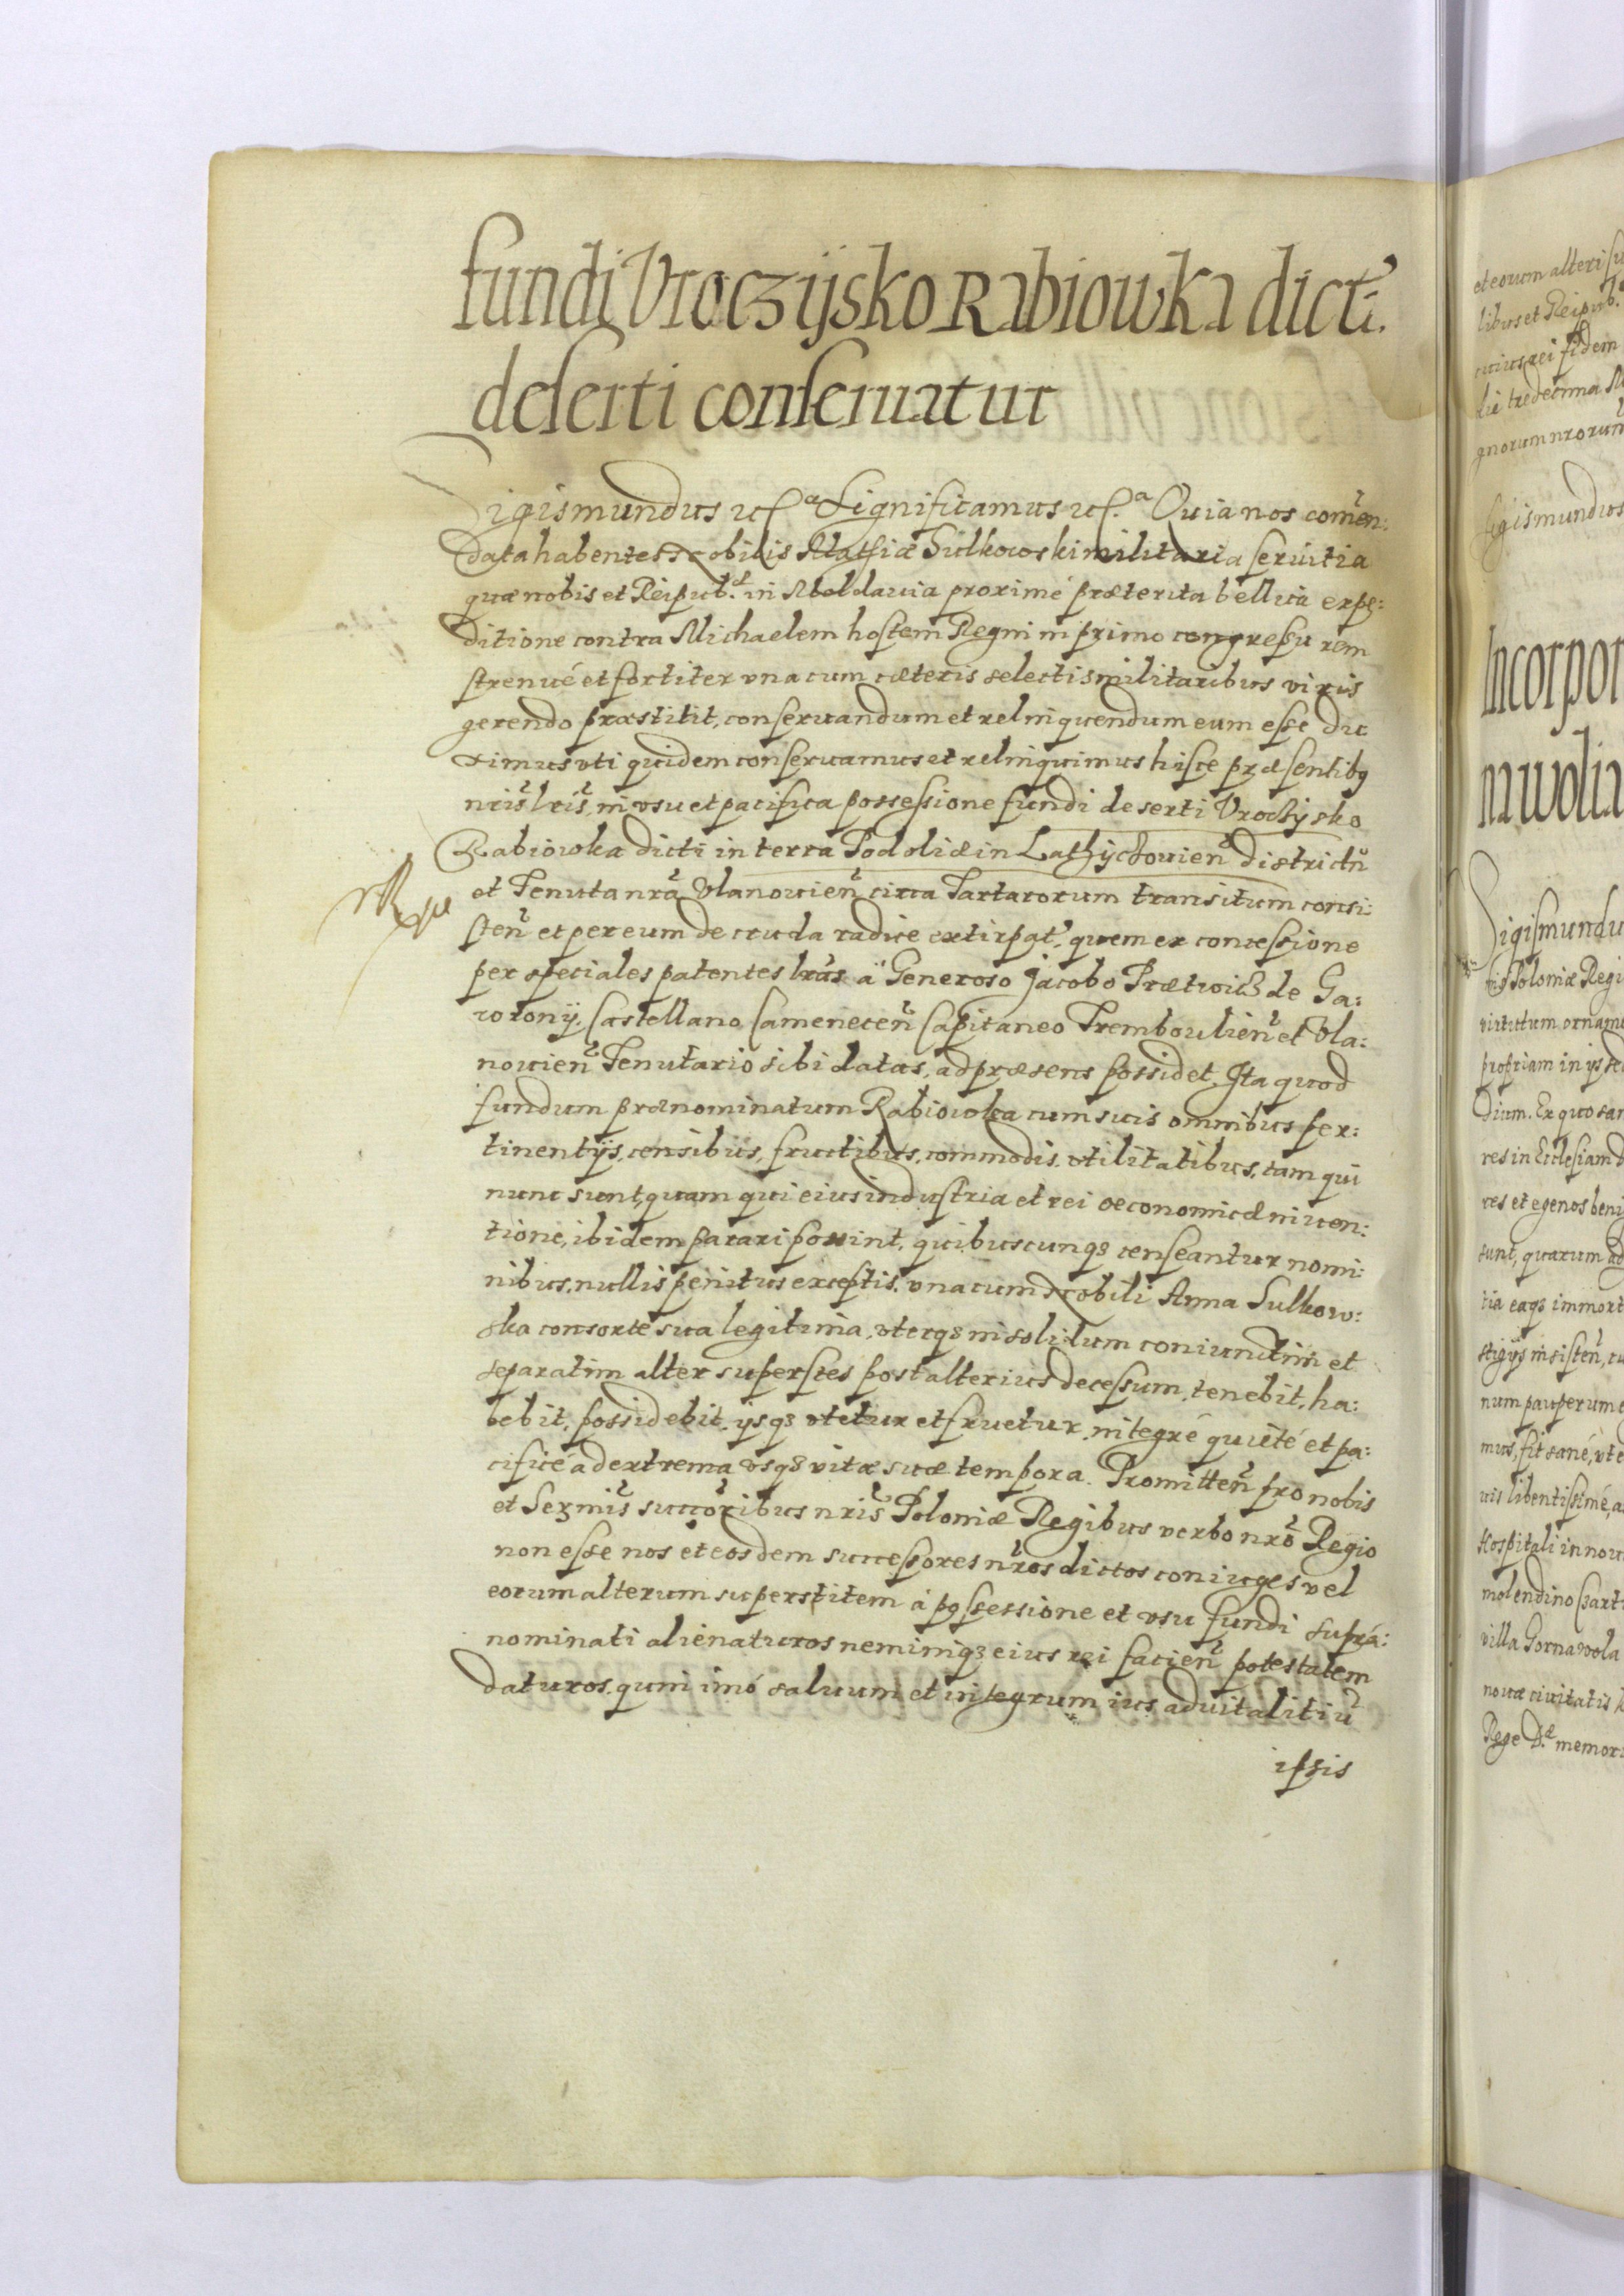 fundi Vroczÿsko Rabiowka dicti
deserti conseruatur
Sigismundus etc.a Significamus etc.a Quia nos com̃en:
data habentes Nobilis Mathiæ Sulkowski militaria seruitia
quæ nobis et Reipub: in Moldauia proximé præterita bellica expe:
ditione contra Michaelem hostem Regni in primo congressu rem
strenué et fortiter vna cum cæteris selectis militaribus viris
gerendo præstitit, conseruandum et relinquendum eum esse dux
ximus vti quidem conseruamus et relinquimus hisce præsentibq
nris̃ lris̃, in vsu et pacifica possessione fundi deserti Vroczysko
Rabiowka dicti in terra Podoliæ in Lathyczouien̄ districtũ
et Tenuta nrã Vlanouien̄ circa Tartarorum transitum consi:
sten̄ et per eum de cruda radice extirpat. quem ex concessione
per speciales patentes lrãs à Generoso Jacobo Prætwicz de Ga:
wrony. Castellano Camenecen̄ Capitaneo Trembowlien̄ et Vla:
nouien̄ Tenutario sibi datas, ad præsens possidet. Ita quod
fundum prænominatum Rabiowka cum suis omnibus per:
tinentijs, censibus, fructibus, commodis, vtilitatibus, tam qui
nunc sunt, quam qui eius industria et rei oeconomicæ inuen:
tione, ibidem parari possint, quibuscunqȝ censeantur nomi:
nibus, nullis penitus exceptis, vna cum Nobili Anna Sulkow:
ska consorte sua legitima, vterqȝ in solidum coniunctim et
separatim alter superstes post alterius decessum, tenebit, ha:
bebit, possidebit, ijsqȝ vtetur et fruetur, integré quieté et pa:
cificé ad extrema vsqȝ vitæ suæ tempora. Promitten̄ pro nobis
et Serm̃is succõribus nris̃ Poloniæ Regibus verbo nrõ Regio
non esse nos et eosdem successores nr̃os dictos coniuges vel
eorum alterum superstitem à possessione et vsu fundi supra:
nominati alienaturos neminiqȝ eius rei facien̄ potestatem
daturos, quin imó saluum et integrum ius aduitalitiũ
ipsis
et eorum alteri su
libus et Reipub.
cuius rei fidem
die tredecima M
gnorum nrorum
Sigismundus
Incorpor
in wolia
Sigismundu
Poloniæ Regi
virtutum orname
propriam in ijs
dium. Ex quo
res in Ecclesiam
res et egenos beni
sunt, quarum ad
tia eaqȝ immort
stigijs insisten̄, cu
num pauperum e
mus, fit sané, vt e
uis libentissimé, a
Hospitali in nou
molendino
villa Gorna wola
nouæ ciuitatis
Rege D.æ memori